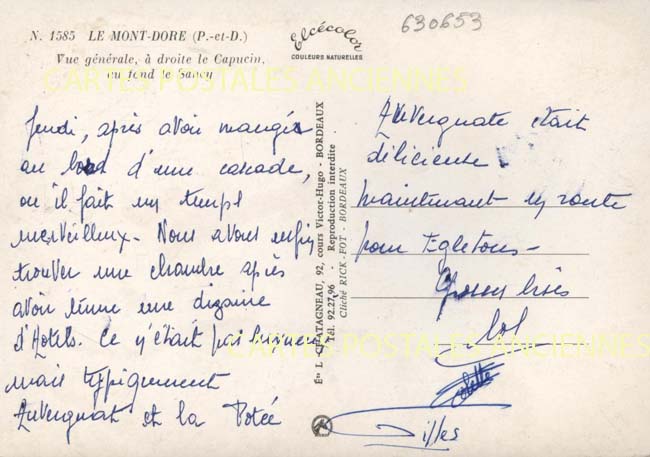 N. 1585 LE MONT-DORE (P.-et-D.)
Vue générale, à droite le Capucin,
au fond le Sancy
Elcécolor
COULEURS NATURELLES
630653
CARTES POSTALES ANCIENNES
Jeudi, après avoir mangés
au bord d'une cascade,
ou il fait un temps
merveilleux. Nous avons enfin
trouver une chambre après
avoir une dizaine
d'Hotels. Ce n'était pas
mais typiquement
Auvergnat et la Potée
Éts L. CHATAGNEAU, 92, cours Victor-Hugo - BORDEAUX
Tél. 92.27.96 - Reproduction interdite
Cliché RICK-FOT - BORDEAUX
Auvergnate était
délicieuse
maintenant en route
pour Egletons -
Grosses bises
CARTES POSTALES ANCIENNES
Gilles